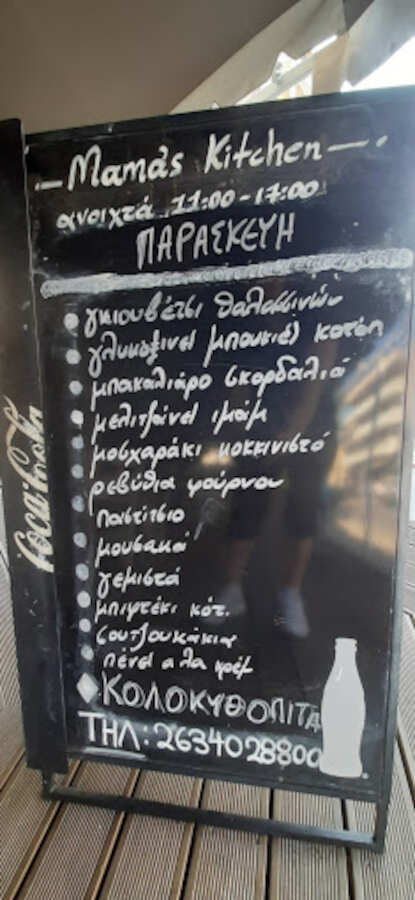 Mama's Kitchen
ανοιχτά 11:00-17:00
ΠΑΡΑΣΚΕΥΗ
γκιουβέτσι θαλασσινών
γλυκόξινες μπουκιές κοτόπ
μπακαλιάρο σκορδαλιά
μελιτζάνες ιμάμ
μοσχαράκι κοκκινιστό
ρεβύθια φούρνου
παστίτσιο
μουσακά
γεμιστά
μπιφτέκι κοτ.
σουτζουκάκια
πένες α λα κρέμ
ΚΟΛΟΚΥΘΟΠΙΤΑ
ΤΗΛ: 2634028800
Coca-Cola